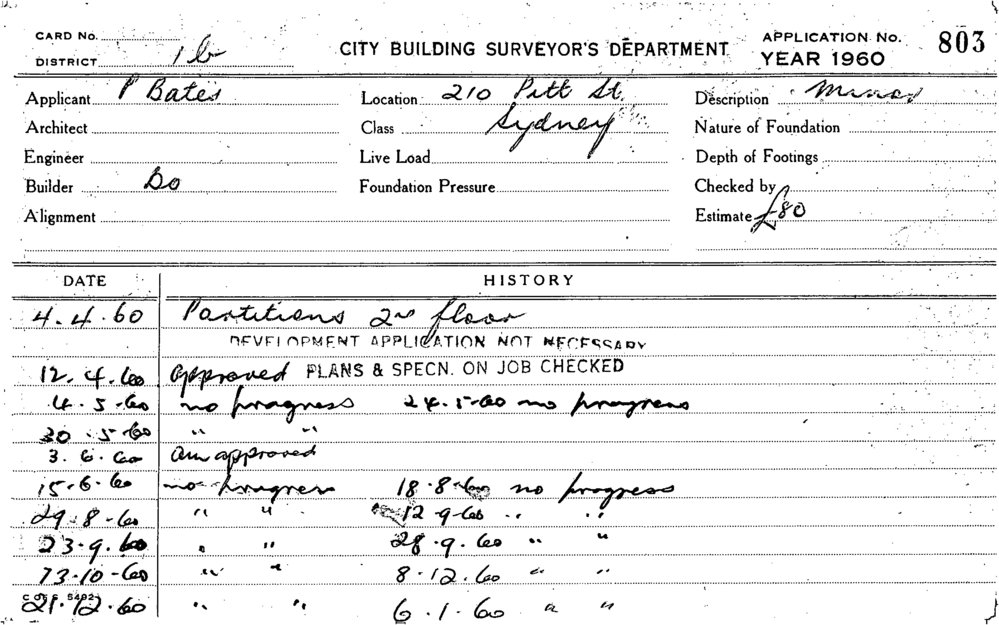 CARD No.
DISTRICT 1b
CITY BUILDING SURVEYOR'S DEPARTMENT
APPLICATION No. 803
YEAR 1960
Applicant P Bates Location 210 Pitt St. Description Minor
Architect Class Sydney Nature of Foundation
Engineer Live Load Depth of Footings
Builder Do Foundation Pressure Checked by
Alignment Estimate £80
DATE HISTORY
4.4.60 Partitions 2nd floor
DEVELOPMENT APPLICATION NOT NECESSARY
12.4.60 approved PLANS & SPECN. ON JOB CHECKED
4.5.60 no progress 24.5.60 no progress
30.5.60 " "
3.6.60 approved
15.6.60 no progress 18.8.60 no progress
29.8.60 " " 12.9.60 " "
23.9.60 " " 28.9.60 " "
13.10.60 " " 8.12.60 " "
21.12.60 " " 6.1.60 " "